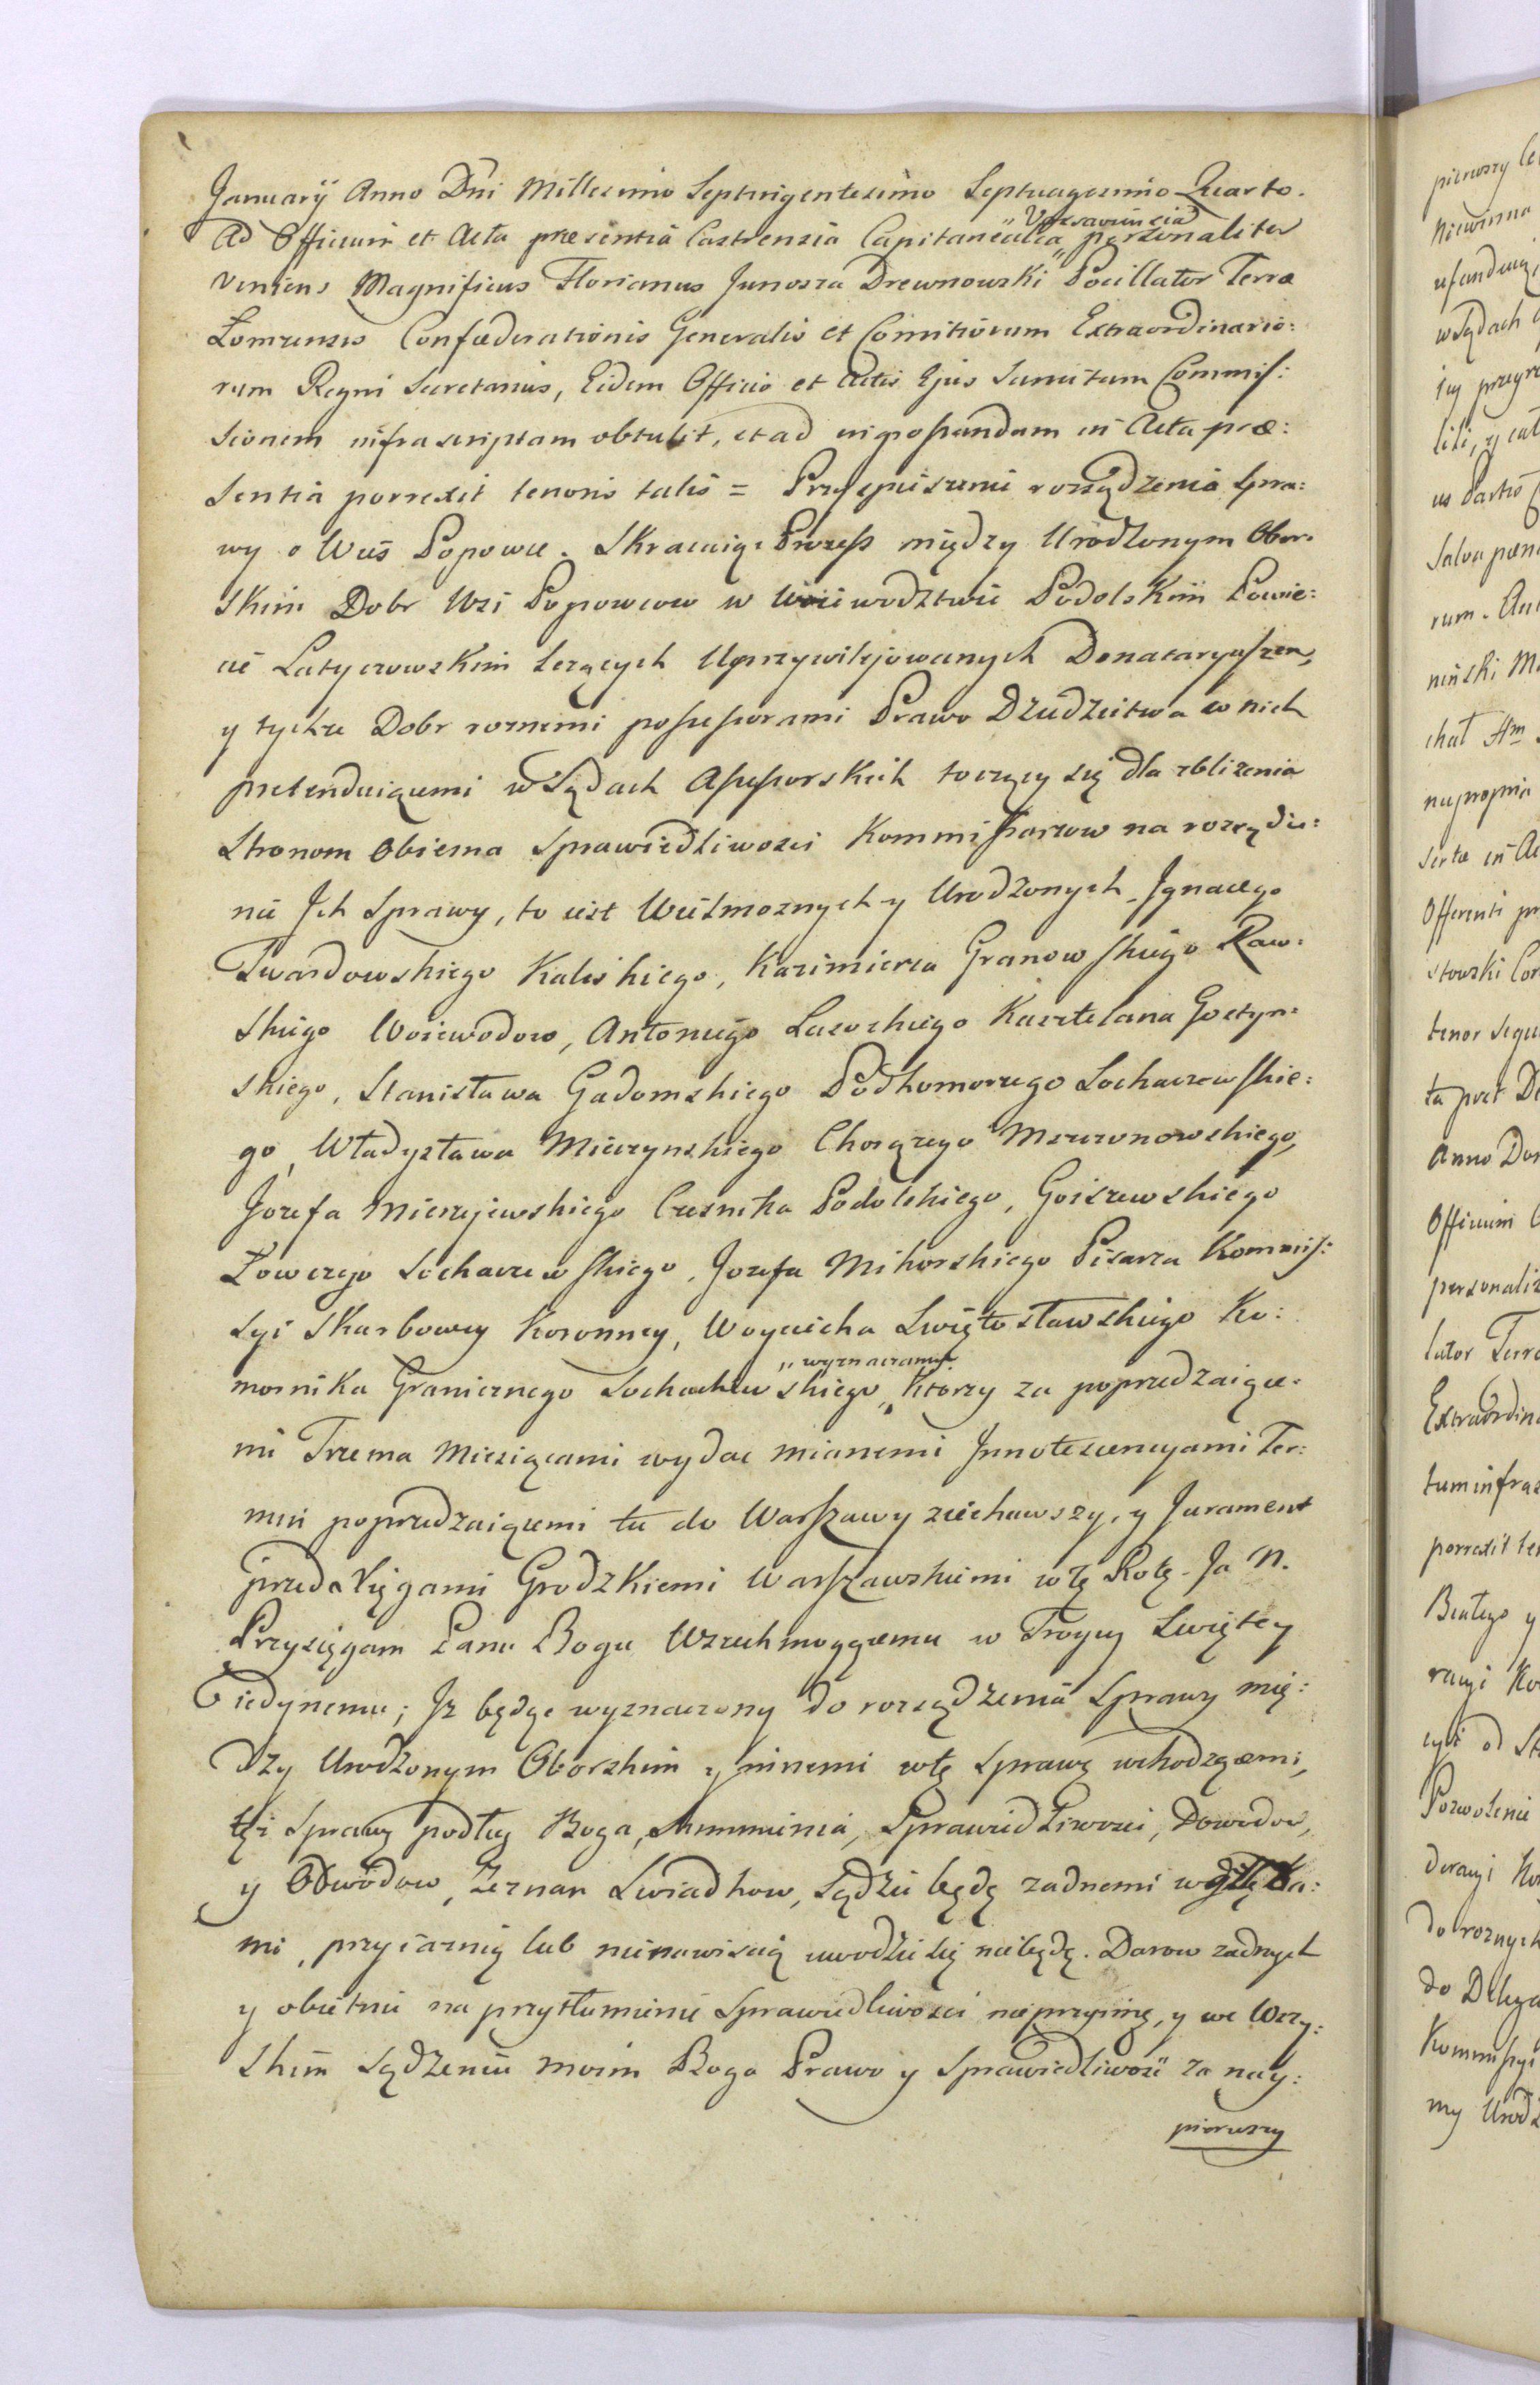 Januarÿ Anno Dni Millesimo Septingentesimo Septuagesimo Quarto.
Ad Officium et Acta præsentia Castrensia Capitanealia „Varsaviensia personaliter
veniens Magnificus Florianus Junosza Drewnowski Pocillator Terræ
Łomzensis Confæderationis Generalis et Comitiorum Extraordinario:
rum Regni Secretarius, Eidem Officio et Actis Ejus Sancitum Commis:
sionem infrascriptam obtulit, et ad ingrossandum in Acta præ:
sentia porrexit tenoris talis = Przyspieszenie rozsądzenia Spra:
wy o Wieś Popowce. Skracaiąc Process między Urodzonym Obor:
skim Dobr Wsi Popowcow w Woiewodztwie Podolskim Powie:
cie Latyczowskim lezących Uprzywilejowanych Donataryuszem,
y tychze Dobr roznemi possessorami Prawo Dziedzictwa do nich
pretenduiącemi w Sądach Assessorskich toczący się dla zblizenia
Stronom Obiema Sprawiedliwosci Kommissarzow na rozsądze:
nie Jch Sprawy, to iest Wielmoznych y Urodzonych Jgnacego
Twardowskiego Kaliskiego, Kazimierza Granowskiego Raw:
skiego Woiewodow, Antoniego Lasockiego Kasztelana Gostyn:
skiego, Stanisława Gadomskiego Podkomorzego Sochaczewskie:
go, Władysława Mierzynskiego Chorązego Mszczonowskiego,
Jozefa Mierzejewskiego Czesnika Podolskiego, Goiszewskiego
Łowczego Sochaczewskiego, Jozefa Mikorskiego Pisarza Kommis:
syi Skarbowey Koronney, Woyciecha Swiętosławskiego Ko:
mornika Granicznego Sochaczewskiego, „wyznaczamy. Ktorzy za poprzedzaiące:
mi Trzema Miesiącami wydac mianemi Jnnotescencyami Ter:
min poprzedzaiącemi tu do Warszawy ziechawszy, y Jurament
przed Xięgami Grodzkiemi Warszawskiemi w tę Rotę. Ja N.
Przysięgam Panu Bogu Wszechmogącemu w Troycy Swiętey
iedynemu; Jz będąc wyznaczony do rozsądzenia Sprawy mię:
dzy Urodzonym Oborskim y innemi w tę Sprawę wchodzącemi,
tęż Sprawę podług Boga, Summienia, Sprawiedliwosci, Dowodow,
y Odwodow, Zeznan Swiadkow, sądzic będę zadnemi względa:
mi, przyiaznią lub nienawiscią uwodzic się nie będę. Darow zadnych
y obietnic na przytłumienie Sprawiedliwosci nieprzyimę, y we Wszy:
stkim Sądzeniu moim Boga Prawo y Sprawiedliwość za nay:
pierwszy